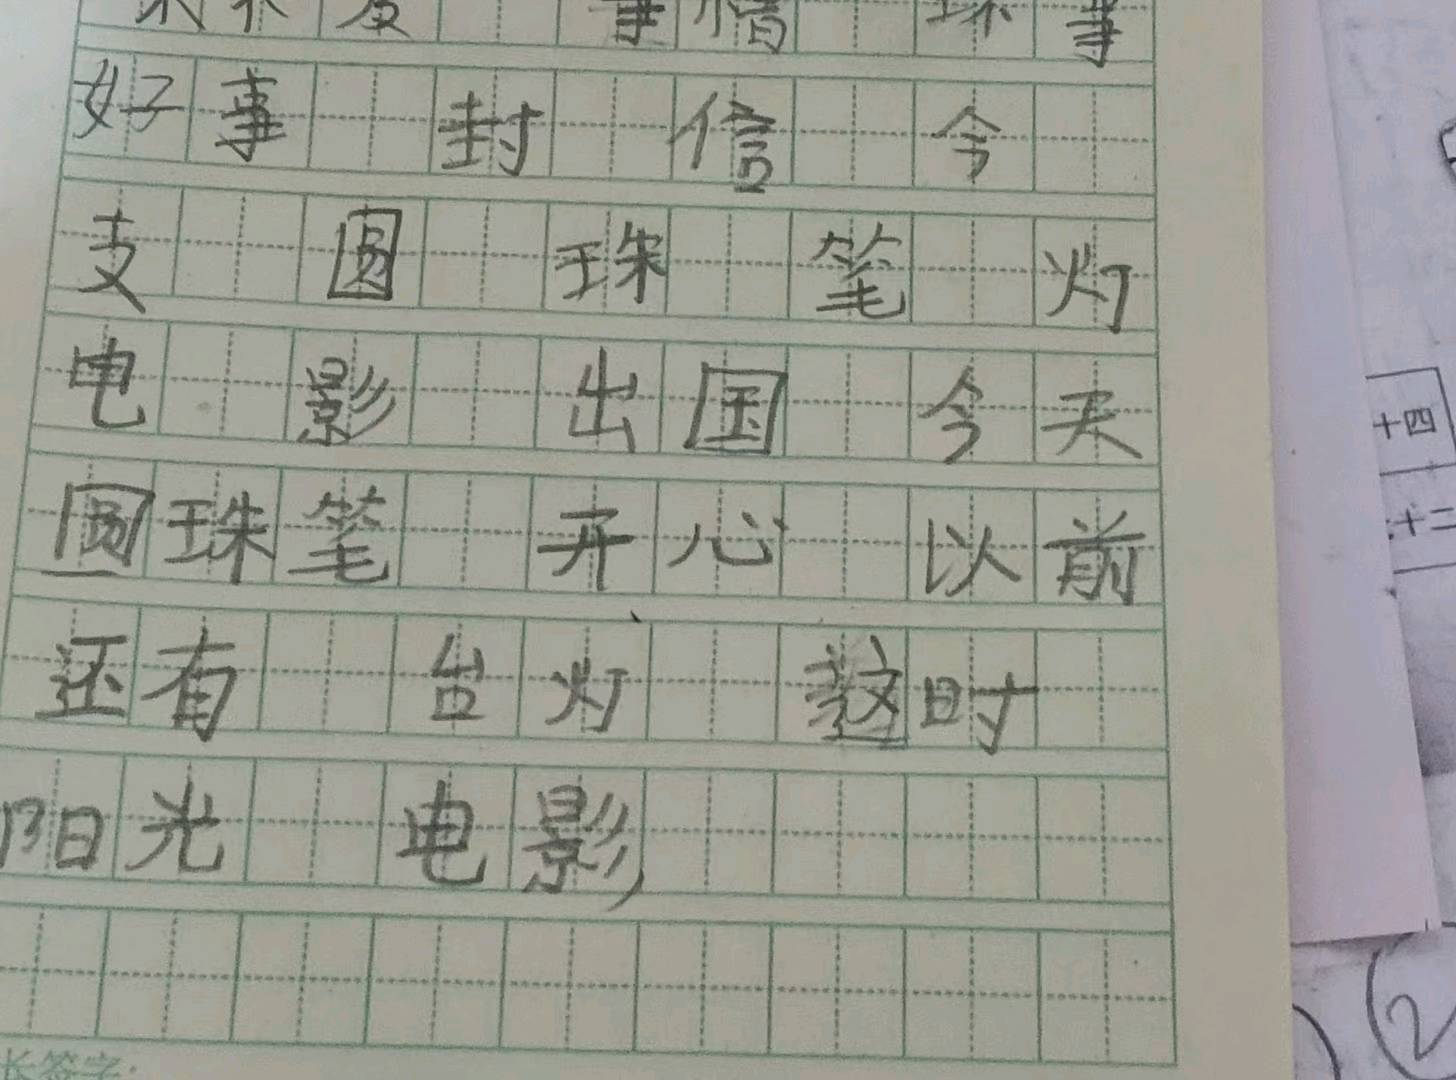 事情 珠 事
好事 封 信 今
支 圆 珠 笔 灯
电 影 出国 今天
圆珠笔 开心 以前
还有 台灯 这时
阳光 电影
长签字:
十四
二十
2